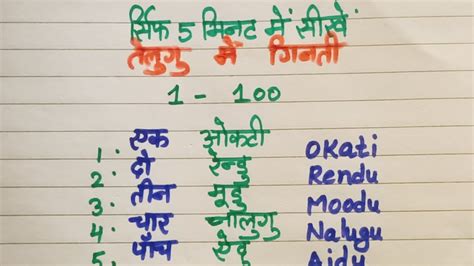 सिर्फ 5 मिनट में सीखें
तेलुगु में गिनती
1 - 100
1. एक ओकटी Okati
2. दो रेन्डु Rendu
3. तीन मूडु Moodu
4. चार नालुगु Nalugu
5. पाँच ऐदु Aidu